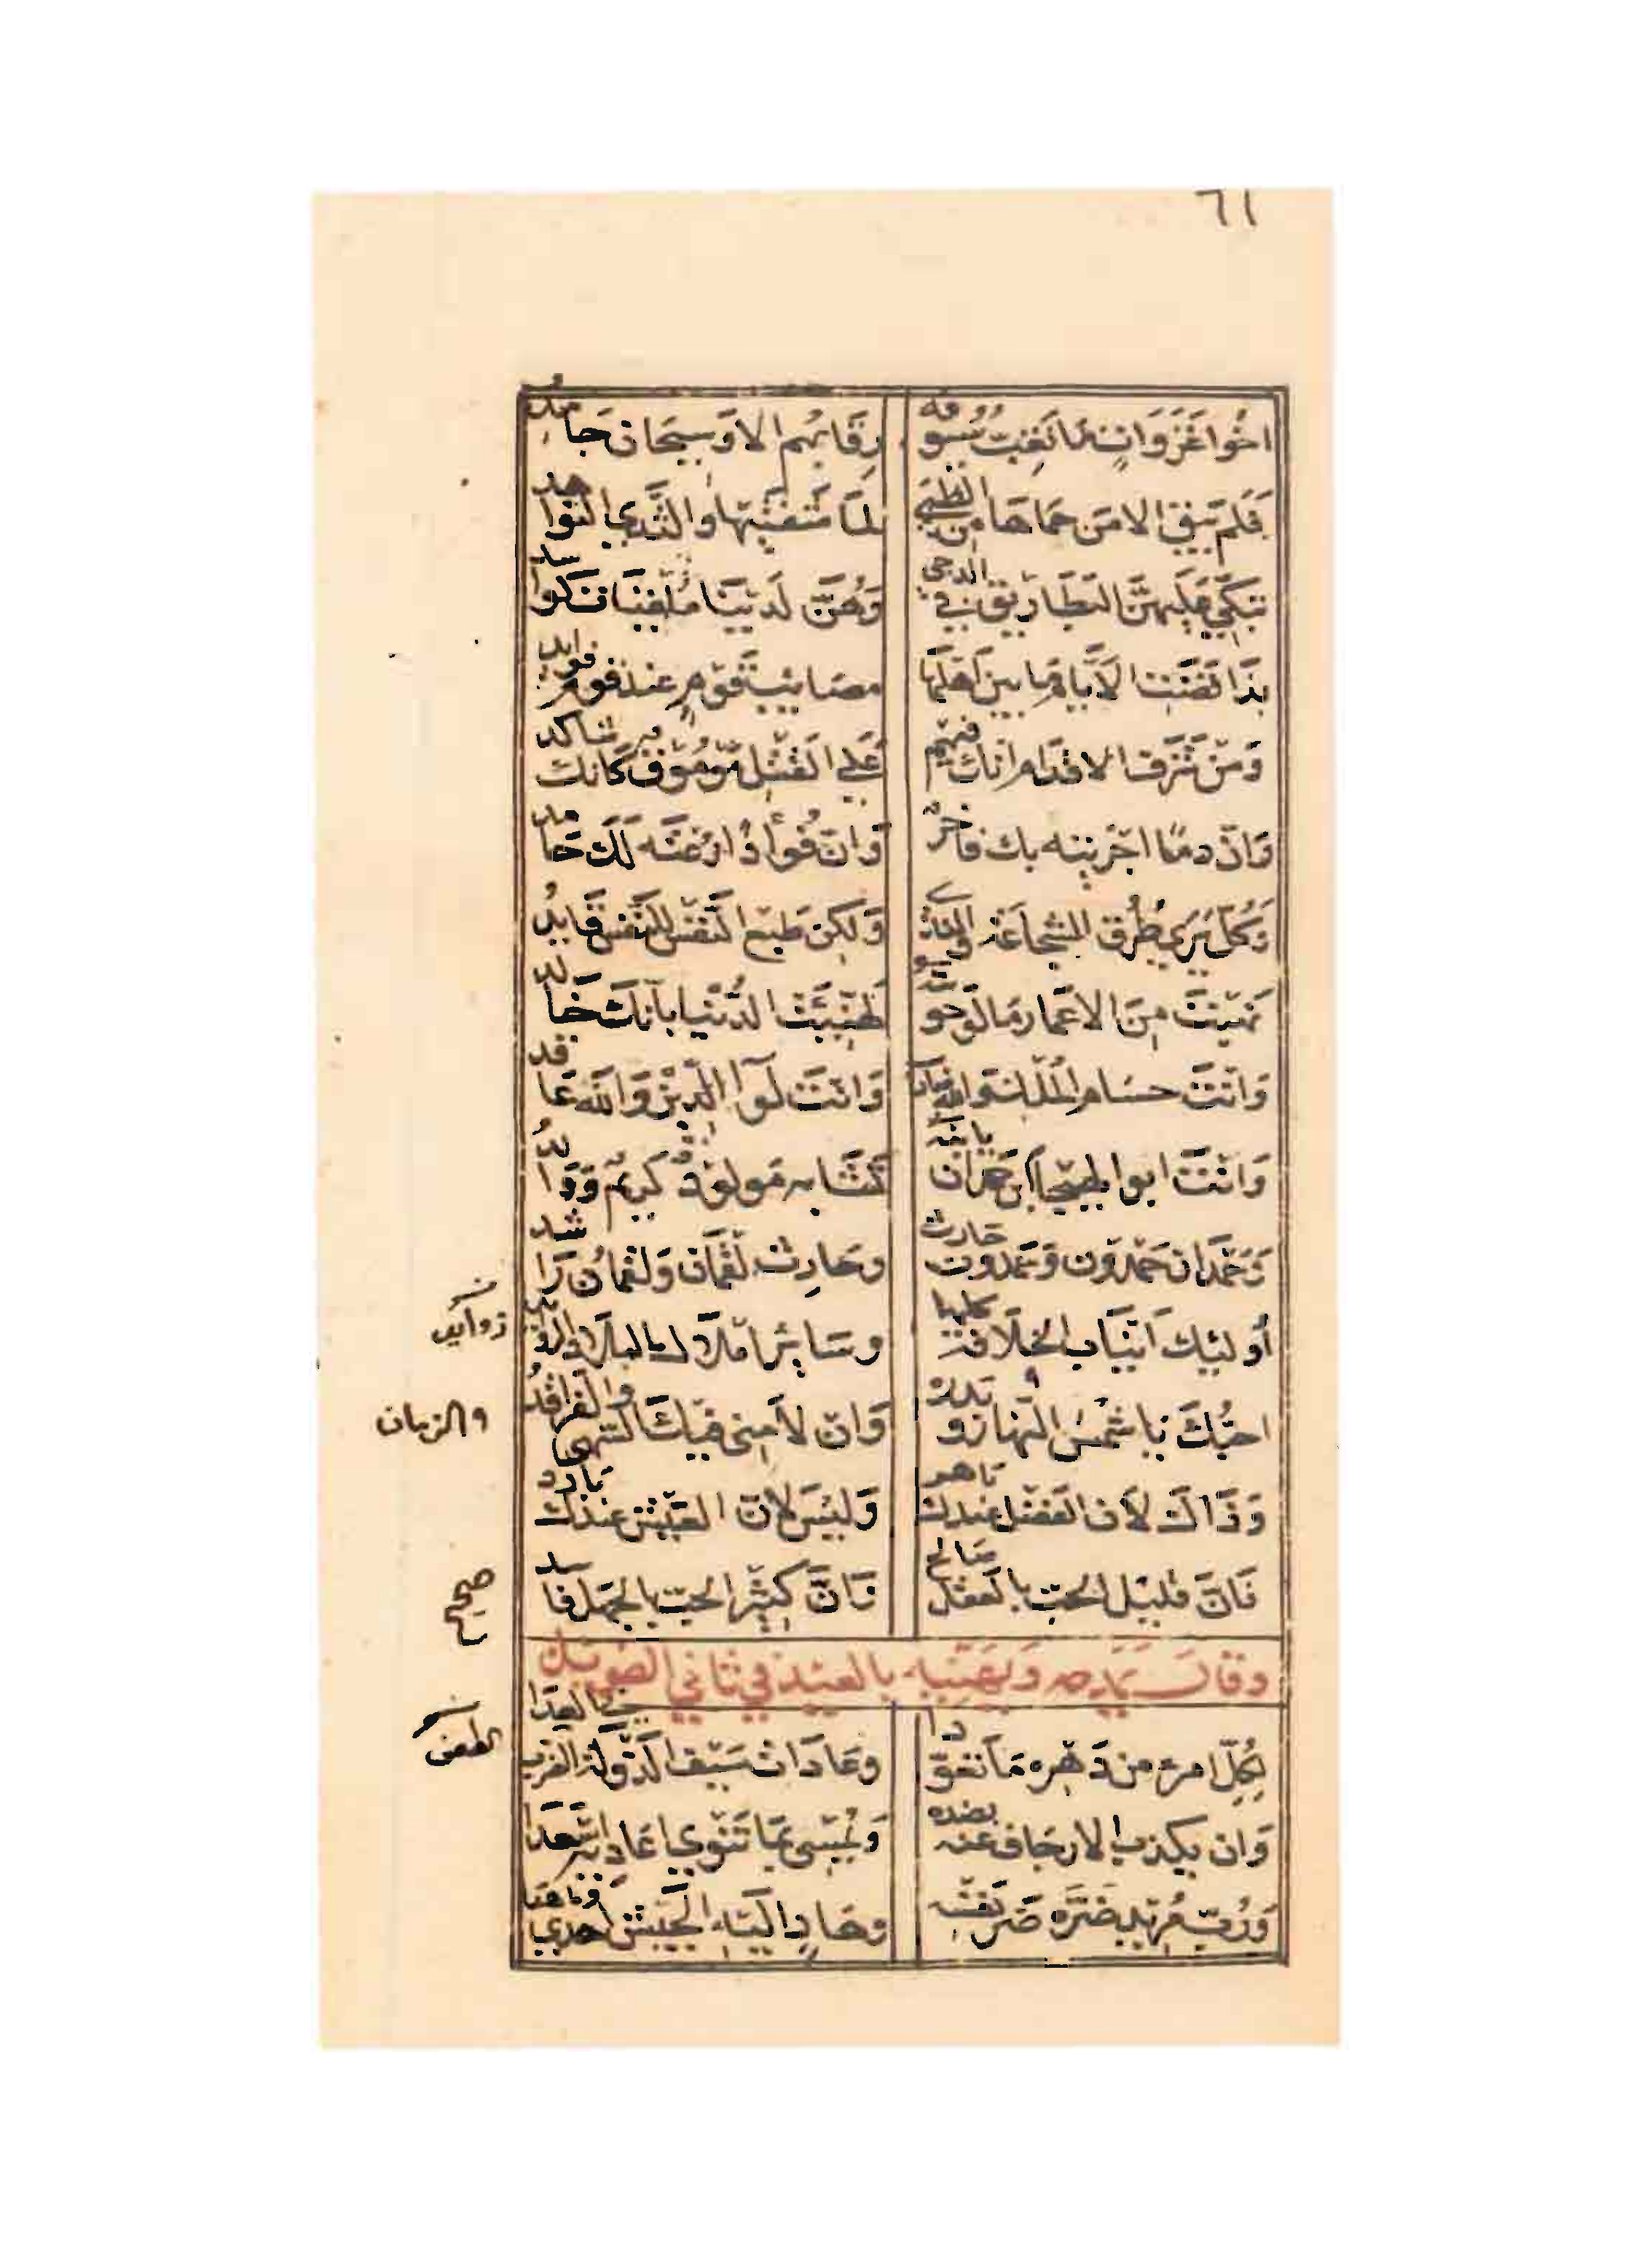 ٦١
اخوا غزوات ما تغبّ سيوفه رقابهم الا وسيحان جامد
فلم يبق الا من حماها من الظبي لما شفتيها والثدي النواهد
تبكي عليهن البطاريق في الدجي وهنّ لدينا ملقيات كواسد
بذا قضت الايام ما بين اهلها مصايب قوم عند قوم فوايد
ومن شرف الاقدام انك فيهم علي القتل موموق كانك شاكد
وان دما اجريته بك فاخر وان فوأدا رعته لك حامد
وكل يري طرق الشجاعة والندي ولكن طبع النفس للنفس قايد
نهبت من الاعمار ما لو حويته لهنئت الدنيا بانك خالد
وانت حسام الملك والله ضارب وانت لوآ الدين والله عاقد
وانت ابوا الهيجا ابن حمدان يا ابنه تشابه مولود كريم ووالد
وحمدان حمدون وحمدون حارث وحارث لقمان ولقمان راشد
أوليك انياب الخلافة كلها وساير املاك البلاد الزوايد
زوايد
احبّك يا شمس النهار وبدره وان لامني فيك السهي والفراقد
والزبان
وذاك لان الفضل عندك باهر وليس لان العيش عندك بارد
فان قليل الحب بالعقل صالح فان كثير الحب بالجهل فاسد
صحيح
وقال يمدحه ويهنيه بالعيد في ثاني الطويل
لكلّ امرء من دهره ما تعوّدا وعادات سيف الدولة الضرب في العدا
الطعن
وان يكذب الارجاف عنه بضده ويمسي بما تنوي اعاديه اسعدا
وربّ مريد ضرّه ضرّ نفسه وهاد اليه الجيش اهدي وما هدا